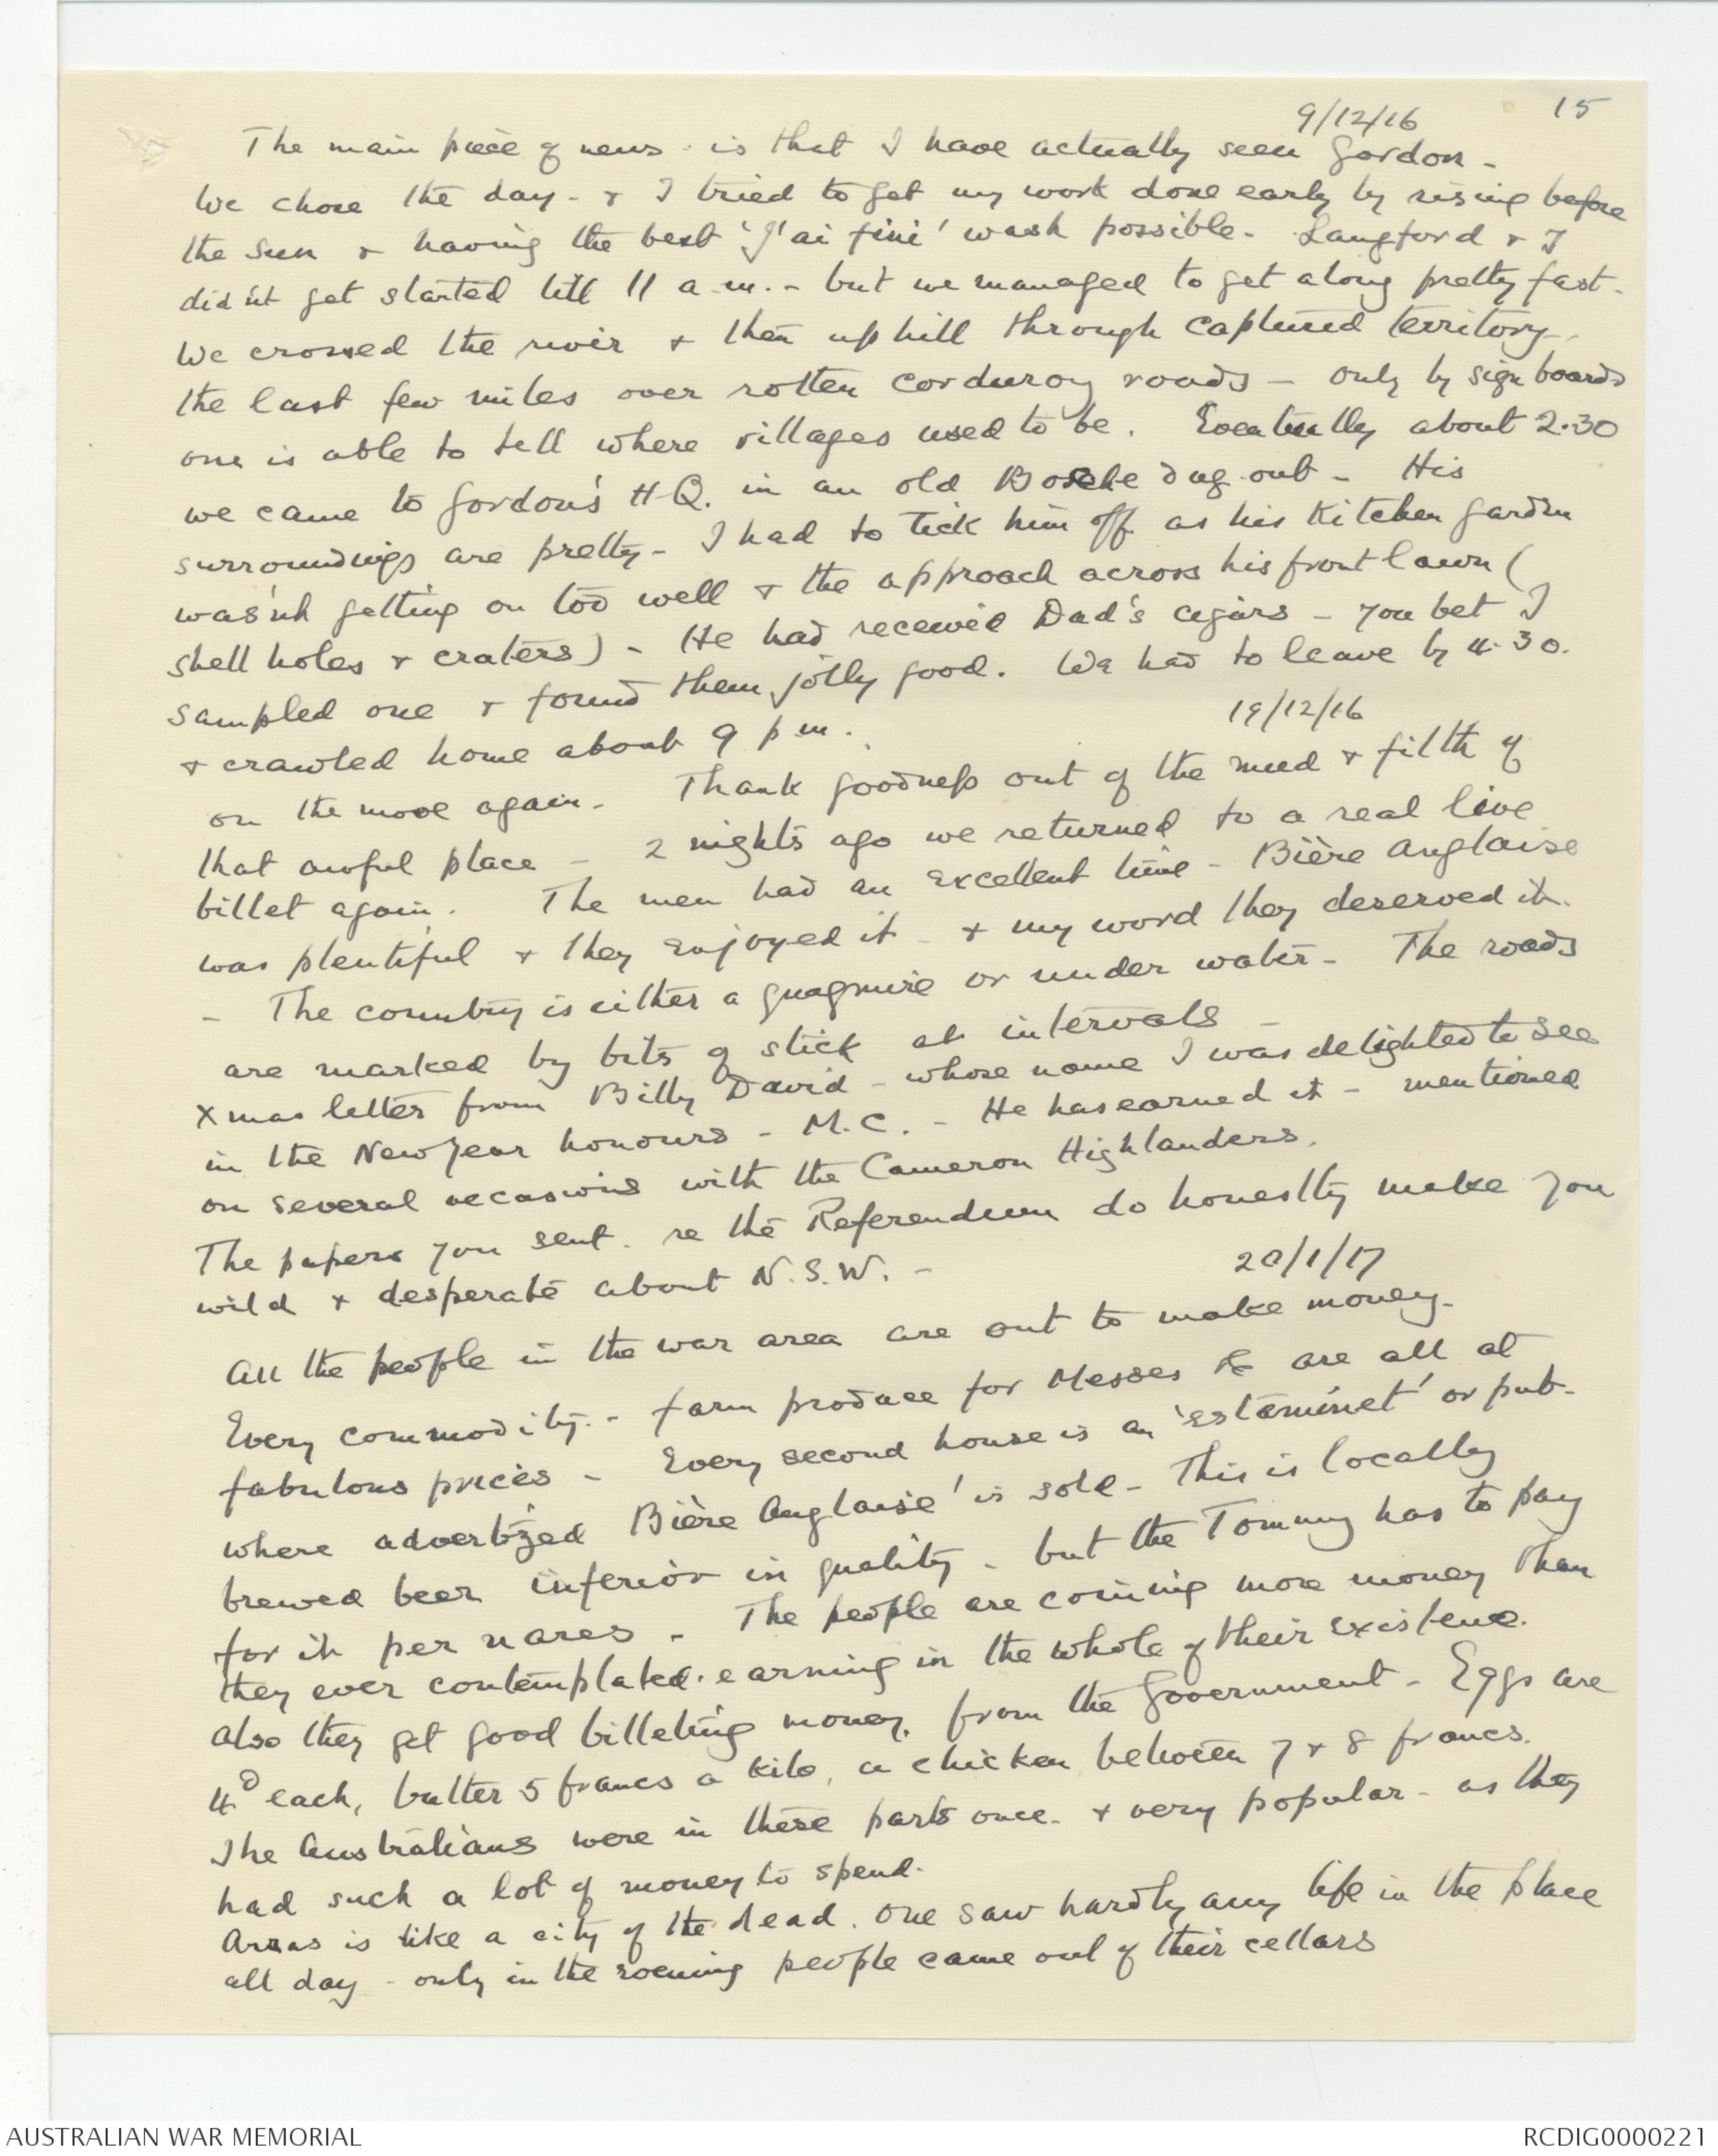 15
9/12/16
The main piece of news is that I have actually seen Gordon -
We chose the day - & I tried to get my work done early by rising before
the sun & having the best 'J'ai fini' wash possible - Langford & I
didn't get started till 11 a.m. - but we managed to get along pretty fast.
We crossed the river & then up hill through captured territory -
the last few miles over rotten corduroy roads - only by sign boards
one is able to tell where villages used to be. Eventually about 2.30
we came to Gordon's H.Q. in an old Bosche dug out - His
surroundings are pretty - I had to tick him off as his kitchen garden
wasn't getting on too well & the approach across his front lawn (
shell holes & craters) - He had received Dad's cigars - you bet I
sampled one & found them jolly good. We had to leave by 4.30.
& crawled home about 9 p m.
19/12/16
on the move again. Thank goodness out of the mud & filth of
that awful place - 2 nights ago we returned to a real live
billet again. The men had an excellent time - Bière Anglaise
was plentiful & they enjoyed it - & my word they deserved it.
- The country is either a quagmire or under water - The roads
are marked by bits of stick at intervals -
Xmas letter from Billy David - whose name I was delighted to see
in the New Year honours - M.C. - He has earned it - mentioned
on several occasions with the Cameron Highlanders.
The papers you sent re the Referendum do honestly make you
wild & desperate about N.S.W. -
20/1/17
All the people in the war area are out to make money -
Every commodity - farm produce for Messes &c are all at
fabulous prices - Every second house is an 'estaminet' or pub -
where advertized Bière Anglaise' is sold - This is locally
brewed beer inferior in quality - but the Tommy has to pay
for it per nares - The people are coining more money than
they ever contemplated earning in the whole of their existence.
Also they get good billeting money from the Government - Eggs are
4d each, butter 5 francs a kilo, a chicken between 7 & 8 francs.
The Australians were in these parts once - & very popular - as they
had such a lot of money to spend.
Arras is like a city of the dead. One saw hardly any life in the place
all day - only in the evening people came out of their cellars
AUSTRALIAN WAR MEMORIAL
RCDIG0000221